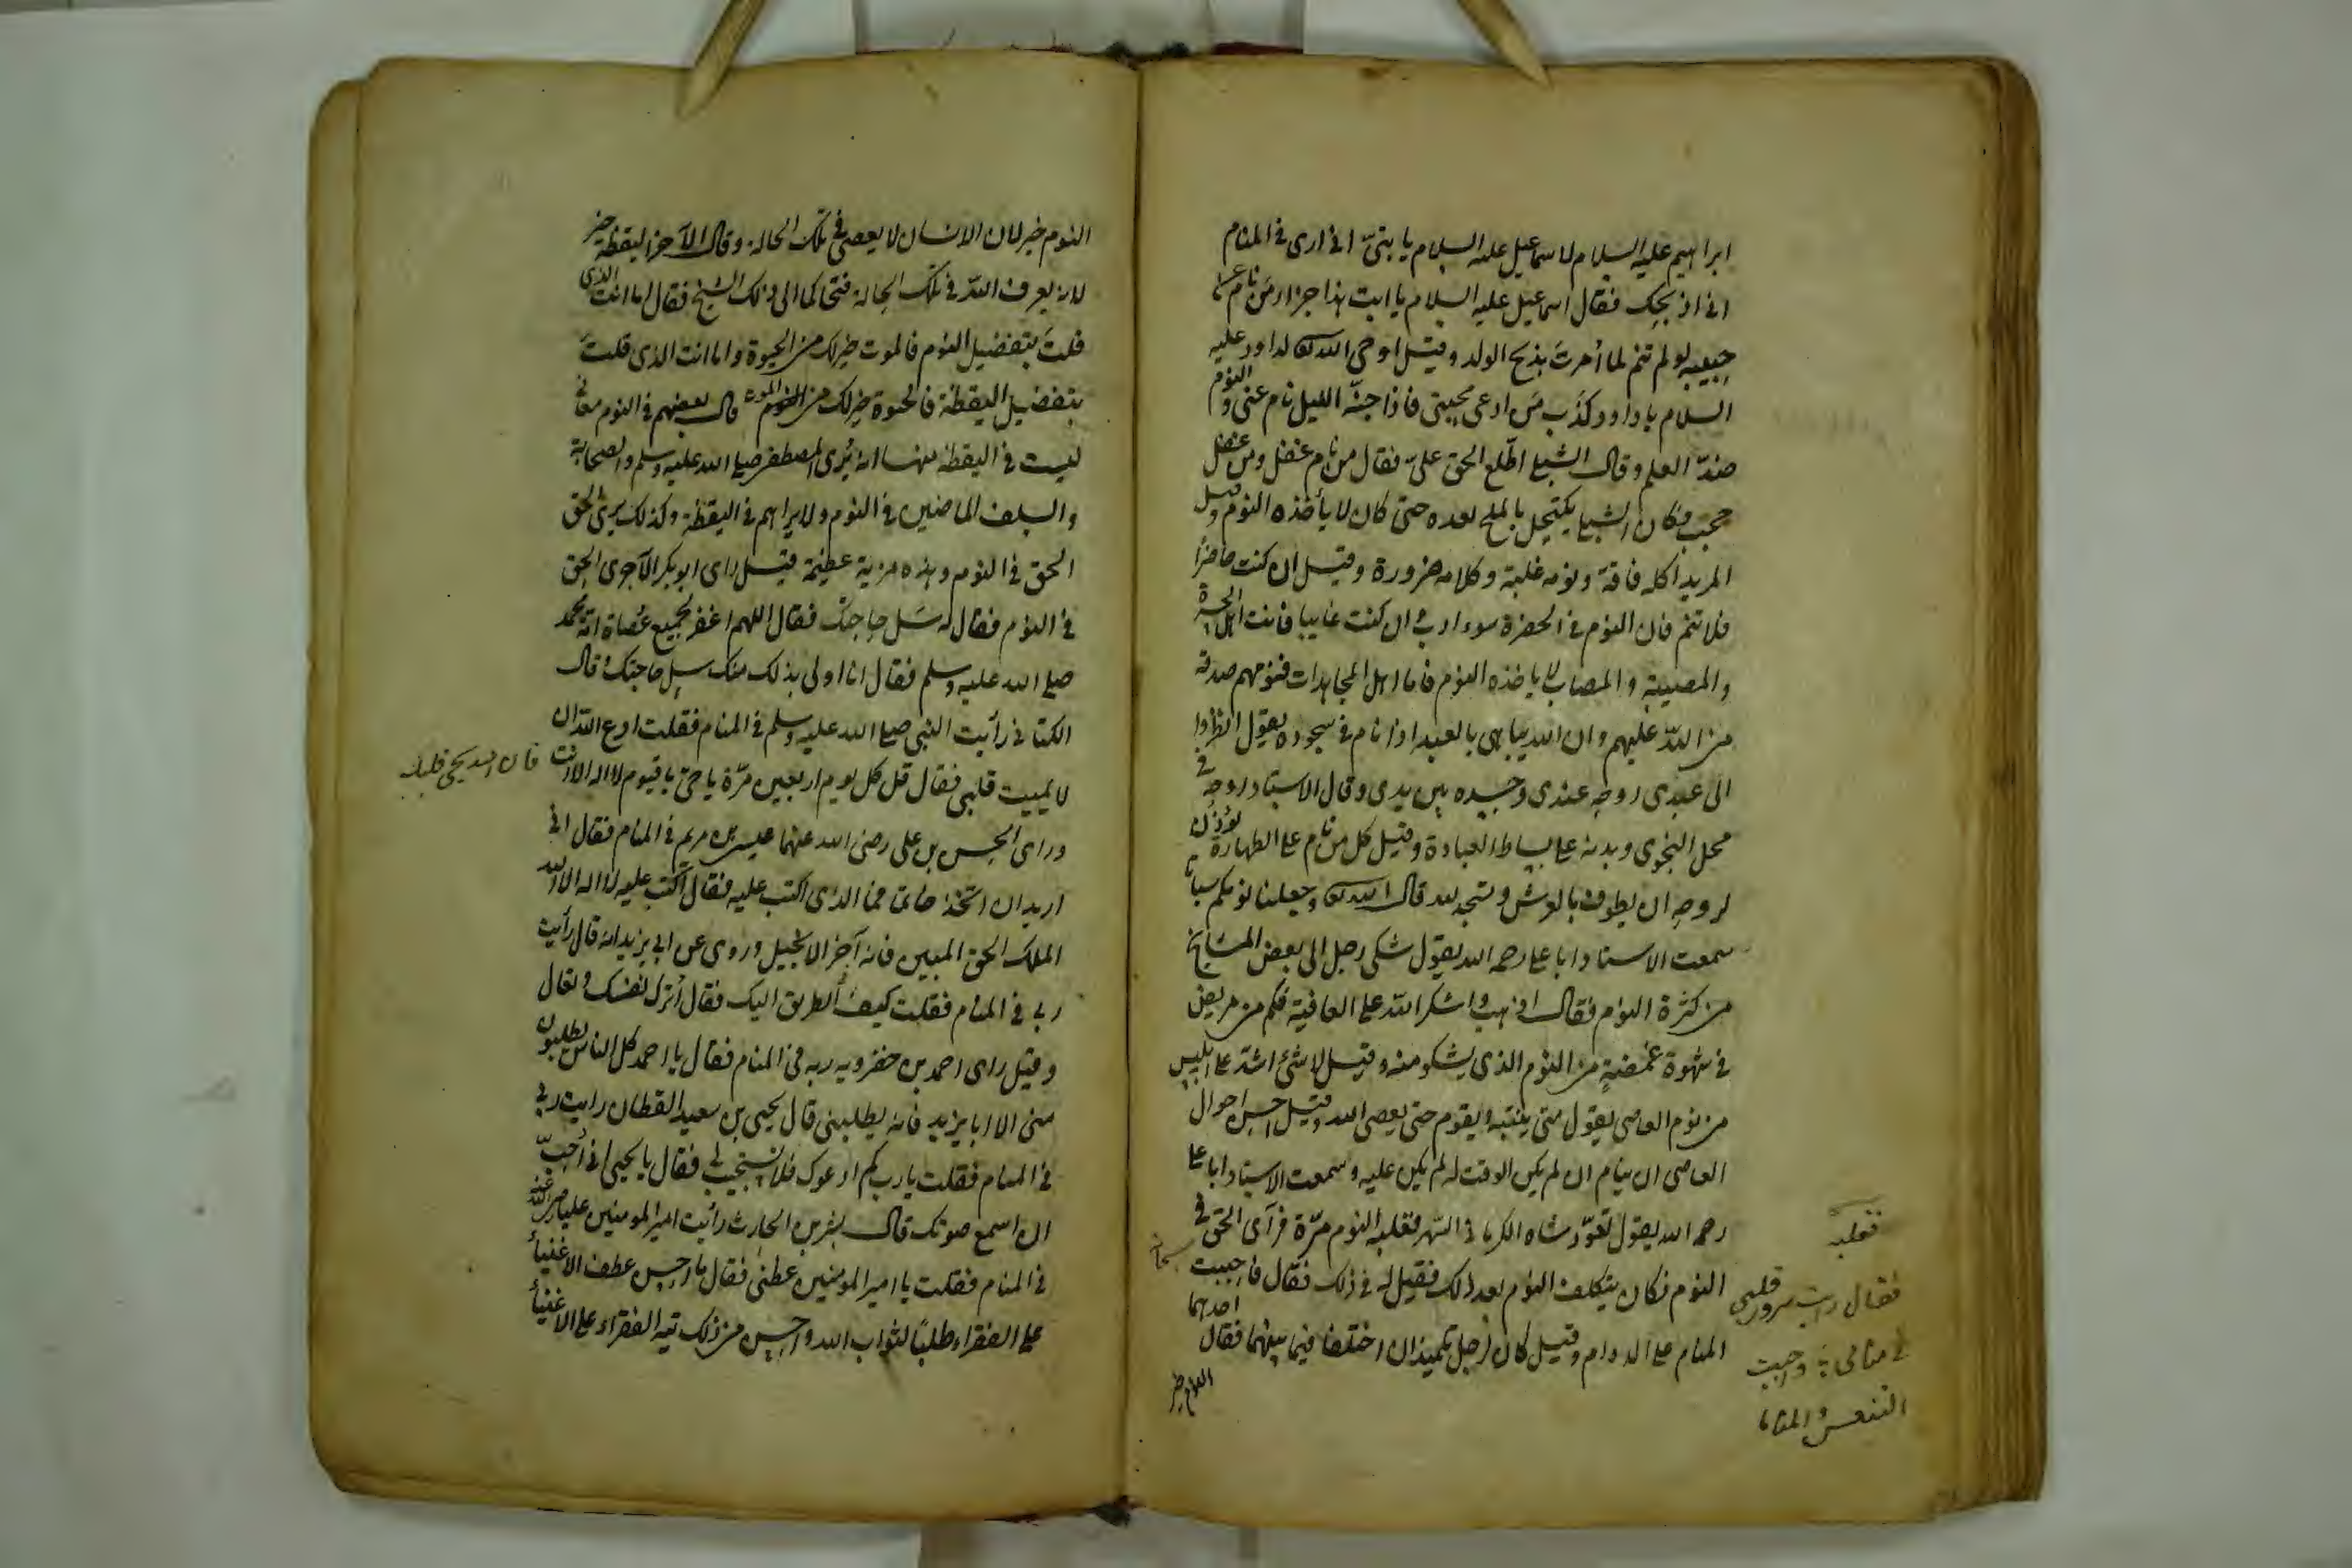 ابراهيم عليه السلام لاسماعيل عليه السلام يا بنىّ انى ارى فى المنام
انى اذبحك فقال اسماعيل عليه السلام يا ابت هذا جزاء من نام عن
حبيبه لو لم تنم لما أمرت بذبح الولد وقيل اوحى الله تعالى لداود عليه
السلام يا داود كذب من ادعى محبتى فاذا جنّه الليل نام عنى والنوم
ضدّ العلم وقال الشبلى اطّلع الحق علىّ فقال من نام غفل ومن غفل
حجب فكان الشبلى يكتحل بالملح بعده حتى كان لا يأخذه النوم وقيل
المريد اكله فاقة ونومه غلبة وكلامه ضرورة وقيل ان كنت حاضرًا
فلا تنم فان النوم فى الحضرة سوء ادب وان كنت غايبا فانت اهل الحسرة
والمصيبة والمصاب لا ياخذه النوم فاما اهل المجاهدات فنومهم صدقة
من اللّه عليهم وان الله يباهى بالعبد اذا نام فى سجوده يقول انظروا
الى عبدى روحه عندى وجسده بين يدى وقال الاستاد روحه فى
محل النجوى وبدنه على بساط العبادة وقيل كل من نام على الطهارة يؤذن
لروحه ان يطوف بالعرش وتسجد لله قال الله تعالى وجعلنا نومكم سباتا
سمعت الاستاد ابا على رحمه الله يقول شكى رجل الى بعض المشايخ
من كثرة النوم فقال اذهب واشكر اللّه على العافية فكم من مريض
فى شهوة غمضةٍ من النوم الذى يشكو منه وقيل لا شئ اشدّ على ابليس
من نوم العاصى يقول متى ينتبه ويقوم حتى يعصى الله وقيل احسن احوال
العاصى ان ينام ان لم يكن الوقت له لم يكن عليه وسمعت الاستاد ابا على
رحمه الله يقول تعوّد شاه الكرمانى السّهر فغلبه النوم مرّة فرآى الحق فى
سبحانه
النوم فكان يتكلف النوم بعد ذلك فقيل له فى ذلك فقال فاحببت
المنام على الدوام وقيل كان لرجل تلميذان اختلفا فيما بينهما فقال احدهما
النوم خير
فغلبه
فقال رأيت سرور قلبى
فى منامى فاحببت
التنعس والمناما
النوم خير لان الانسان لا يعصى فى تلك الحالة وقال الآخر اليقظة خير
لانه يعرف اللّه فى تلك الحالة فتحاكما الى ذلك الشيخ فقال اما انت الذى
قلتَ بتفضيل النوم فالموت خير لك من الحيوة واما انت الذى قلتَ
بتفضيل اليقظة فالحيوة خير لك من الموت قال بعضهم فى النوم معانى
ليست فى اليقظة منها انه يُرى المصطفى صلى الله عليه وسلم والصحابة
والسلف الماضين فى النوم ولا يراهم فى اليقظة وكذلك يرى الحق
الحق فى النوم وهذه مزية عظيمة قيل راى ابو بكر الآجرى الحق
فى النوم فقال له سَل حاجتك فقال اللهم اغفر لجميع عُصاة امّة محمد
صلى الله عليه وسلم فقال انا اولى بذلك منك سل حاجتك وقال
الكتانى رأيت النبى صلى الله عليه وسلم فى المنام فقلت ادع اللّه ان
لا يميت قلبى فقال قل كل يوم اربعين مرّة يا حىّ يا قيوم لا اله الا انت
فان الله يحيى قلبك
وراى الحسن بن على رضى الله عنهما عيسى بن مريم فى المنام فقال انى
اريد ان اتخذ خاتما فما الذى اكتب عليه فقال اكتب عليه لا اله الا الله
الملك الحق المبين فانه آخر الانجيل وروى عن ابى يزيد انه قال رأيت
ربى فى المنام فقلت كيف الطريق اليك فقال أترك نفسك وتعال
وقيل راى احمد بن خضرويه ربه فى المنام فقال يا احمد كل الناس يطلبون
منى الا ابا يزيد فانه يطلبنى قال يحيى بن سعيد القطان رايت ربى
فى المنام فقلت يا رب كم ادعوك فلا تستجيب لى فقال يا يحيى انى أحبّ
ان اسمع صوتك قال بشر بن الحارث رأيت امير المومنين عليا رضى الله عنه
فى المنام فقلت يا امير المومنين عظنى فقال ما احسن عطف الاغنياء
على الفقراء طلبًا لثواب الله واحسن من ذلك تيه الفقراء على الاغنياء